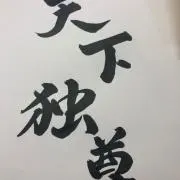 天下独尊